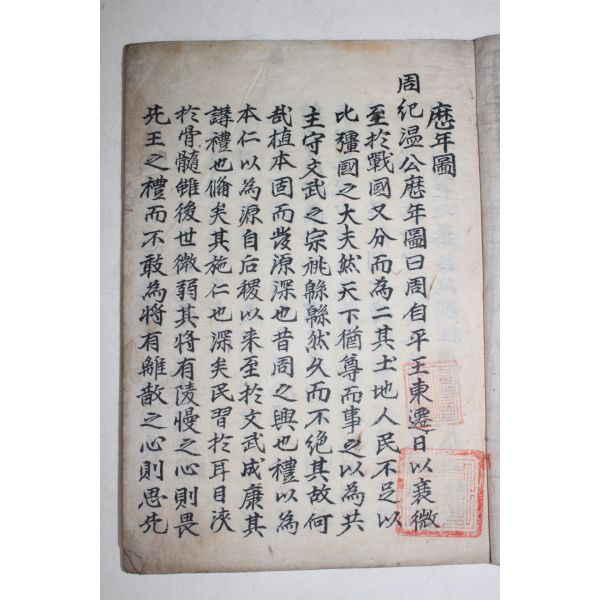 歷年圖
周紀溫公歷年圖曰周自平王東遷日以衰微
至於戰國又分而為二其土地人民不足以
比彊國之大夫然天下猶尊而事之以為共
主守文武之宗祧緜緜然久而不絕其故何
㢤植本固而發源深也昔周之興也禮以為
本仁以為源自后稷以来至於文武成康其
講禮也偹矣其施仁也深矣民習於耳目浹
於骨髓雖後世微弱其將有陵慢之心則畏
先王之禮而不敢為將有離散之心則思先